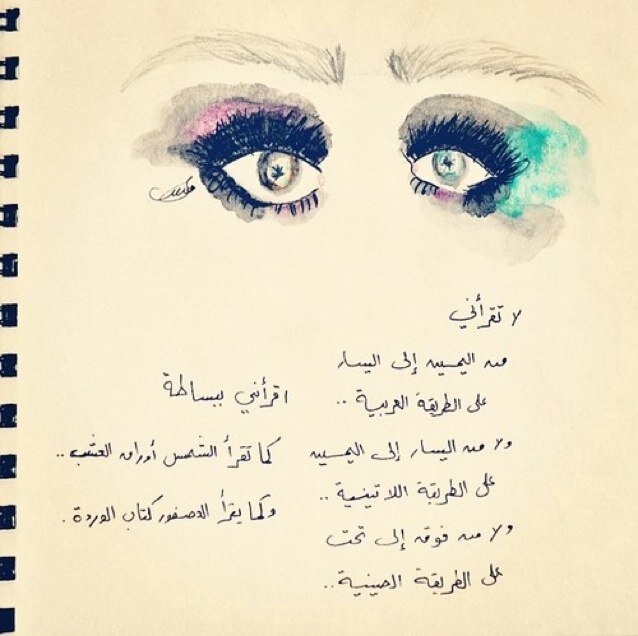 لا تقرأني
من اليمين إلى اليسار
على الطريقة العربية ..
ولا من اليسار إلى اليمين
على الطريقة اللاتينية ..
ولا من فوق إلى تحت
على الطريقة الصينية ..
اقرأني ببساطة
كما تقرأ الشمس أوراق العشب ..
وكما يقرأ العصفور كتاب الوردة .